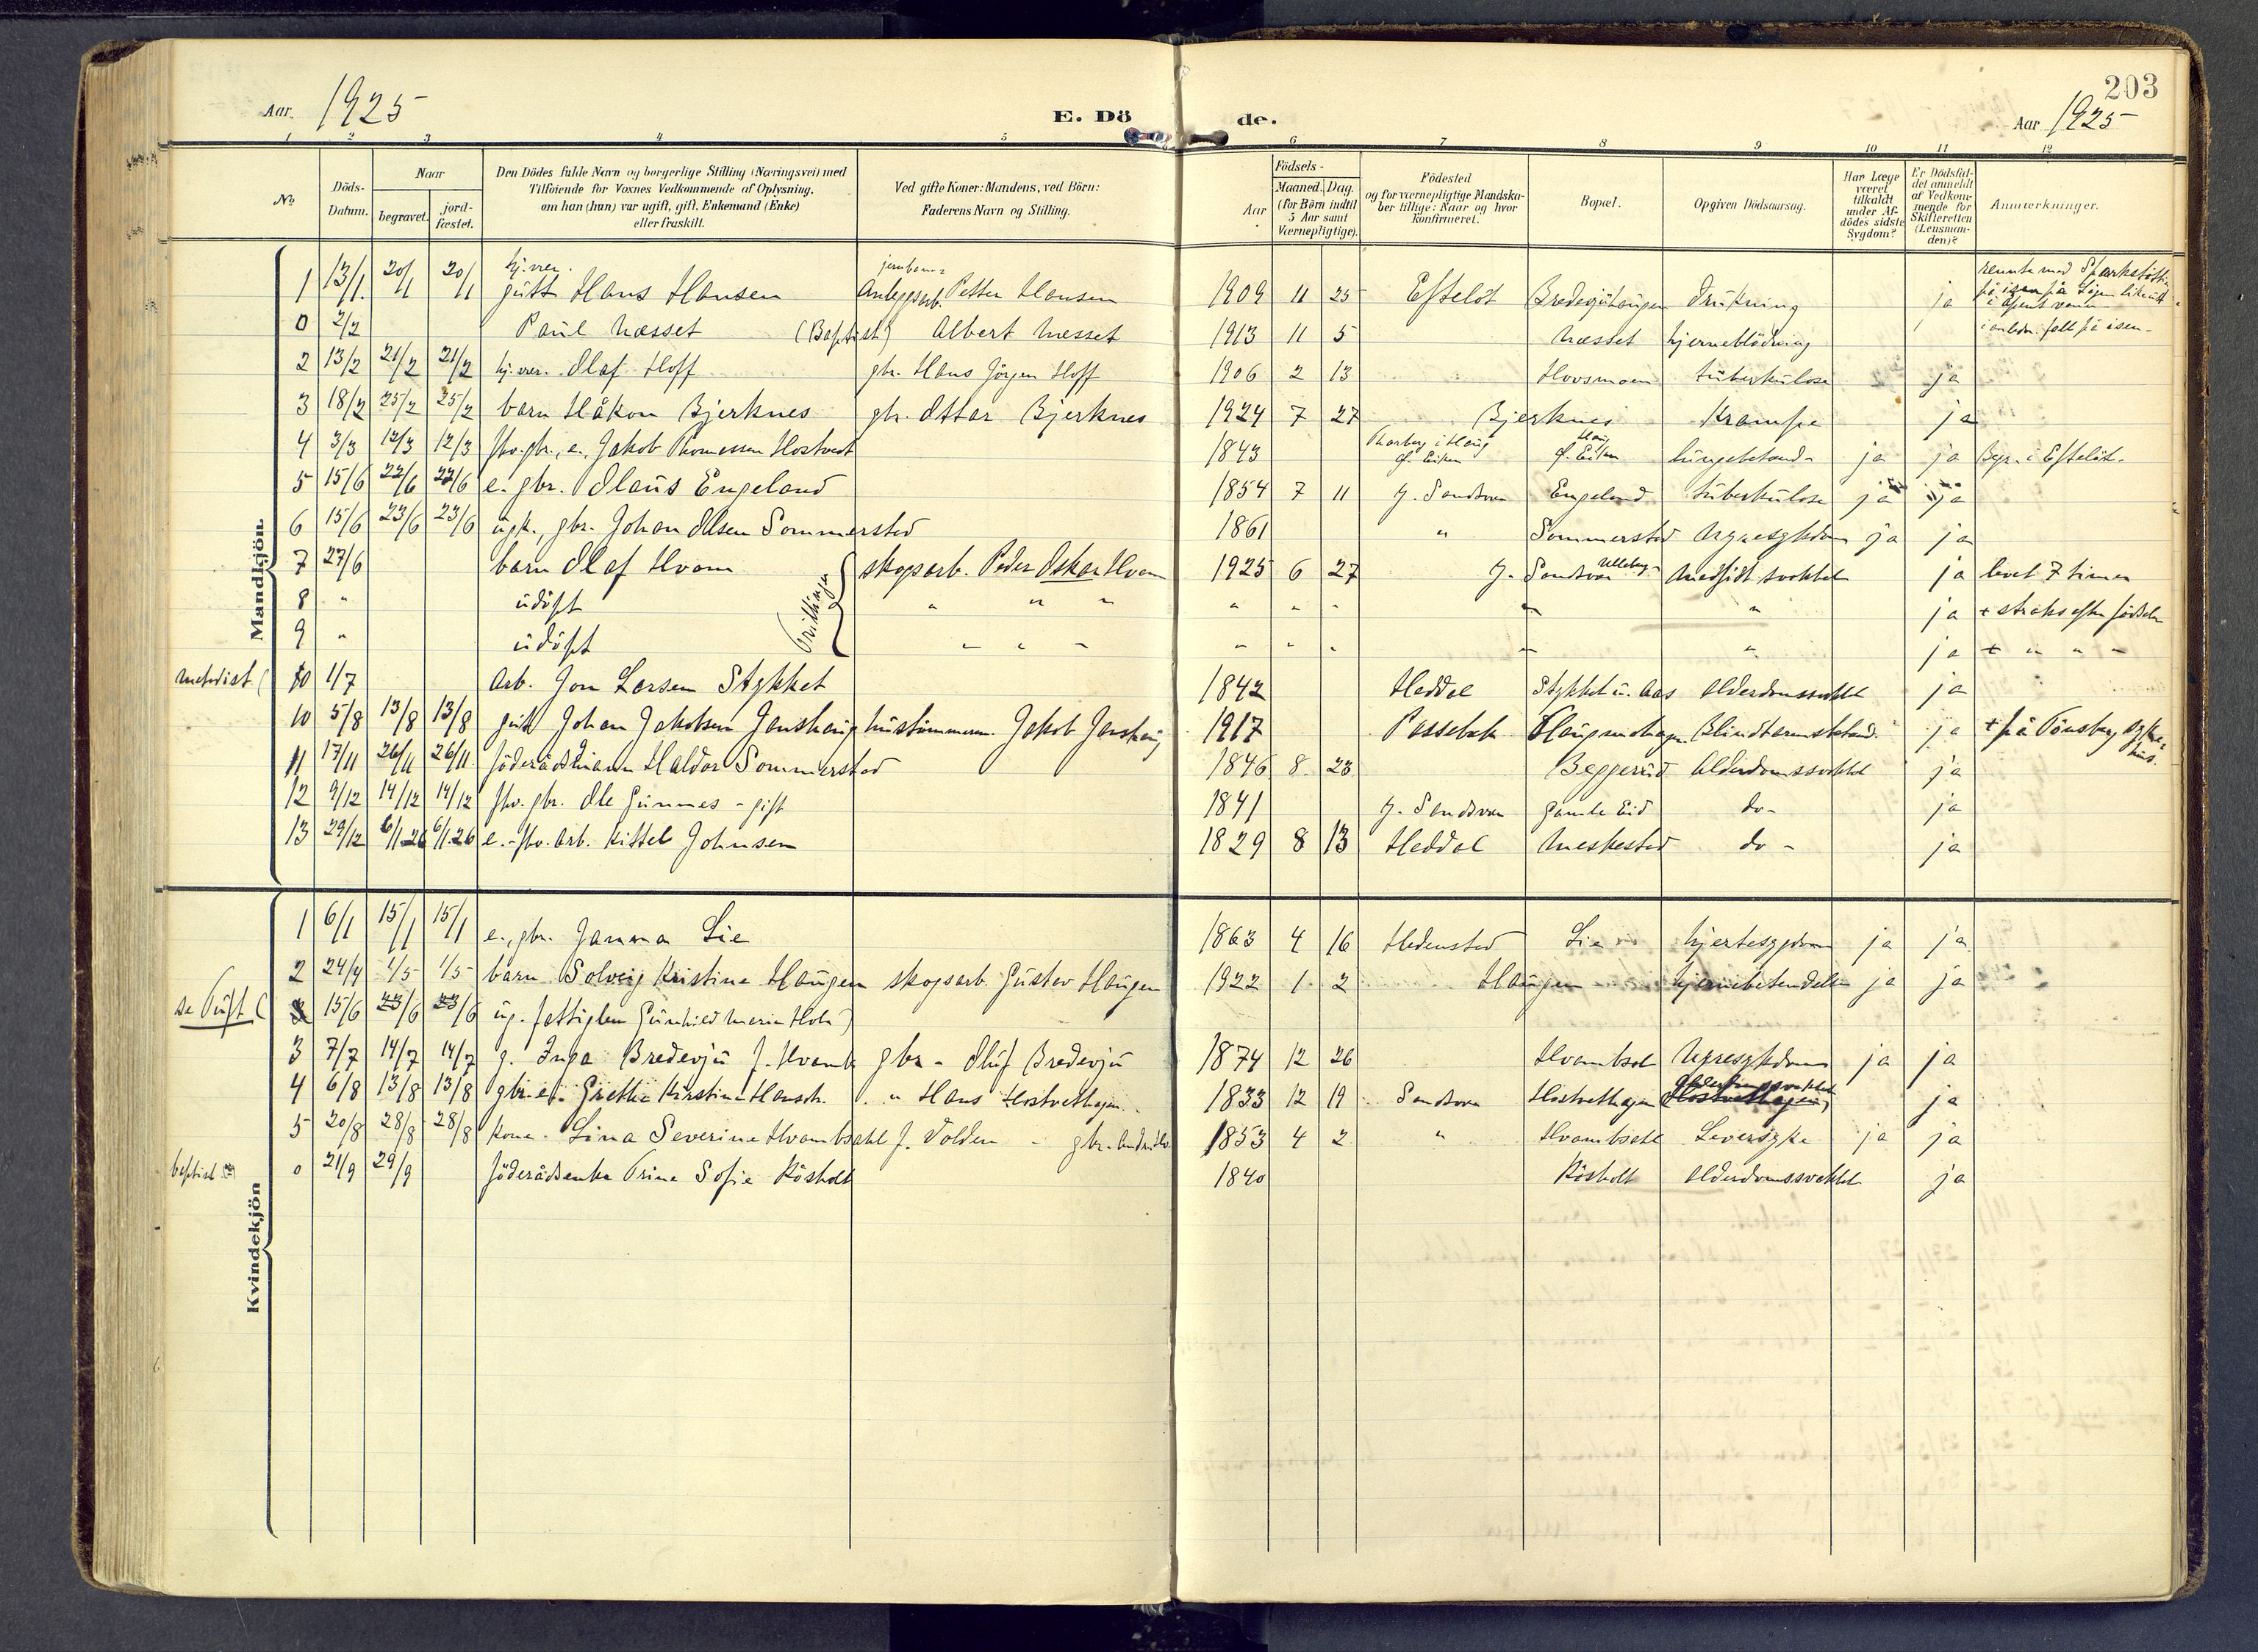 203
Aar. 1925 E. Dö de. Aar 1925
1 2 3 4 5 6 7 8 9 10 11 12
No
Döds-Datum.
Naar
begravet.
jord-fæstet.
Den Dödes fulde Navn og borgerlige Stilling (Næringsvei) med
Tilföiende for Voxnes Vedkommende af Oplysning,
om han (hun) var ugift, gift, Enkemand (Enke)
eller fraskilt.
Ved gifte Koner: Mandens, ved Börn:
Faderens Navn og Stilling.
Födsels-
Aar
Maaned. Dag.
(for Börn indtil
5 Aar samt
Værnepligtige).
Födested
og for værnepligtige Mandska-
ber tillige: Naar og hvor
konfirmeret.
Bopæl.
Opgiven Dödsaarsag.
Har Læge
været
tilkaldt
under Af-
dödes sidste
Sygdom?
Er Dödsfal-
det anmeldt
af Vedkom-
mende for
Skifteretten
(Lensman-
den)?
Anmærkninger.
Mandkjön.
1 13/1. 20/1 20/1 hj.vær. gütt Hans Hansen Anleggsarb. Petter Hansen 1909 11 25 Efteløt Drükning ja
0 2/2 Paul Næsset (Baptist) Albert Næsset 1913 11 5 Næsset hjerneblödning
2 13/2 21/2 21/2 hj.vær. Olaf Hoff gbr. Hans Jörgen Hoff 1906 2 13 Hovsmoen tüberkülose ja
3 18/2 25/2 25/2 barn Håkon Bjerknes gbr. Ottar Bjerknes 1924 7 27 Bjerknes Krampe ja
4 3/3 12/3 12/3 fhv. gbr., e. Jakob Thomessen Hostvedt 1843 lüngebetænd- ja ja Begr. i Efteløt.
5 15/6 22/6 22/6 e. gbr. Olaüs Engeland 1854 7 11 J. Sandsvær Engeland tüberkülose ja ja
6 15/6 23/6 23/6 ügt., gbr. Johan Olsen Sommersted 1861 " Sommersted Nyresykdom ja ja
7 27/6 barn Olaf Hvam skogsarb. Peder Oskar Hvam 1925 6 27 J. Sandsvær Medfödt svakhet ja levet 7 timer
Trillinger
8 " üdöpt " " " " " " " " ja + straks efter födselen
9 " üdöpt " " " " " " " " ja + " " "
metodist ( 10 1/7 Arb. Jon Larsen Stykket 1842 Heddal Stykket ü. Aas Alderdomssvakhet ja
10 5/8 13/8 13/8 gütt Johan Jakobsen Janshaüg hüstömmerm. Jakob Janshaüg 1917 Passebæk Blindtarmsbetænd. ja + på Tönsberg sykehüs.
11 17/11 26/11 26/11 föderådsmann Haldor Sommersted 1846 8 23 Beggerüd Alderdomssvakhet ja
12 9/12 14/12 14/12 fhv. gbr. Ole Günnes - gift 1841 J. Sandsvær Gamle Eid do- ja
13 29/12 6/1 26 6/1 26 e. fhv. arb. Kittel Johnsen 1829 8 13 Heddal Meskestad do - ja
Kvindekjön
1 6/1 15/1 15/1 e., gbr. Janna Lie 1863 4 16 Hedensted Lie hjertesygdom ja ja
2 24/4 1/5 1/5 barn Solveig Kristine Haügen skogsarb. Güstav Haügen 1922 1 2 Haügen hjernebetændelse ja ja
15/6 23/6 23/6 üg. fattiglem Günhild Marie Holm)
3 7/7 14/7 14/7 g. Inga Bredevjü f. Hvamb gbr - Olüf Bredevjü 1874 12 26 Hvambsal Nyresykdom ja ja
4 6/8 13/8 13/8 gbr.e. Grethe Kirstine Hansdr. " Hans Hostvethagen 1833 12 19 Sandsvær Hostvethagen Alderdomssvakhet ja
5 20/8 28/8 28/8 kone. Lina Severine Hvambsahl f. Volden - 1853 4 2 " Hvambsahl Leversyke ja ja
baptist 0 21/9 29/9 föderådsenke Trine Sofie Kösholt 1840 Kösholt Alderdomssvakhet ja